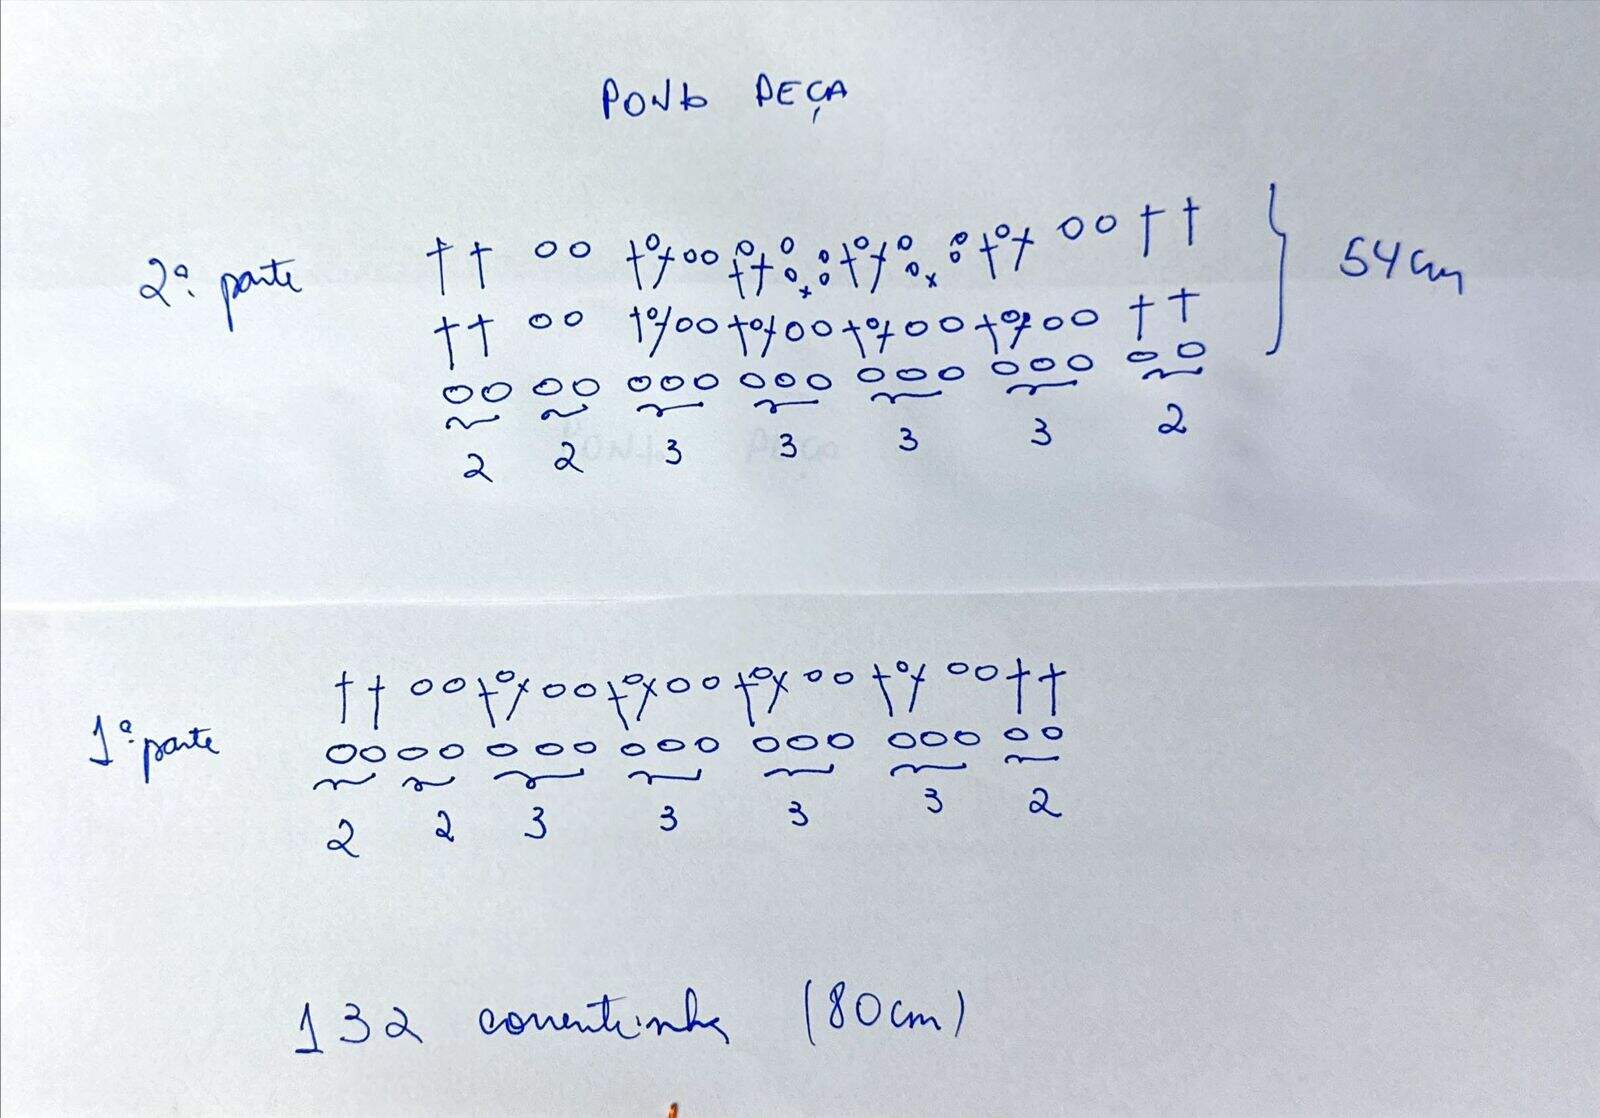 PONTO PEÇA
2ª parte
54cm
2 2 3 3 3 3 2
1ª parte
2 2 3 3 3 3 2
132 correntinha (80cm)